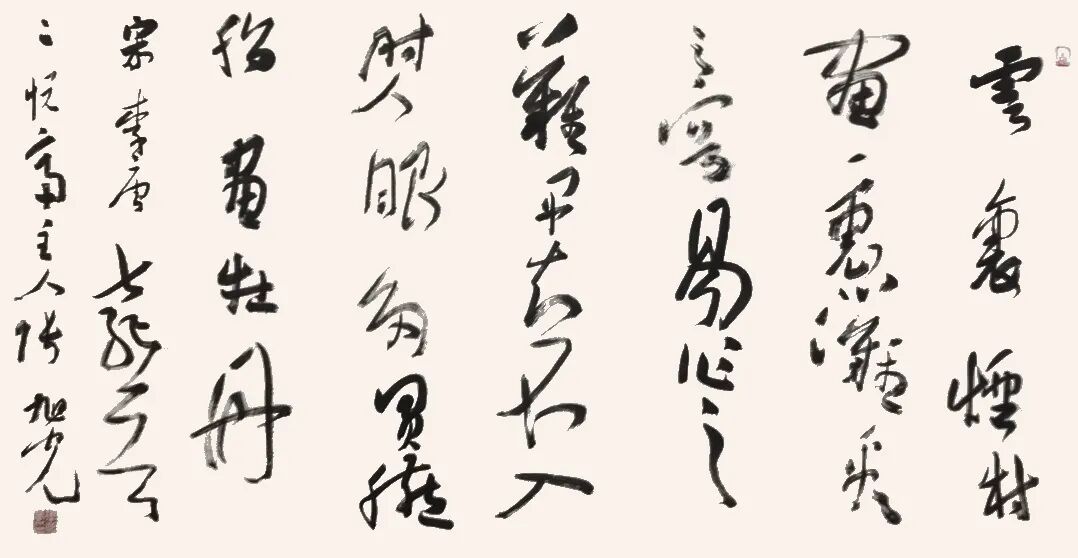 雲裏煙村
雨裏灘看
之容易作之
難早知不入
時人眼多買臙
脂畫牡丹
宋李唐七絕
悦齋主人張旭光